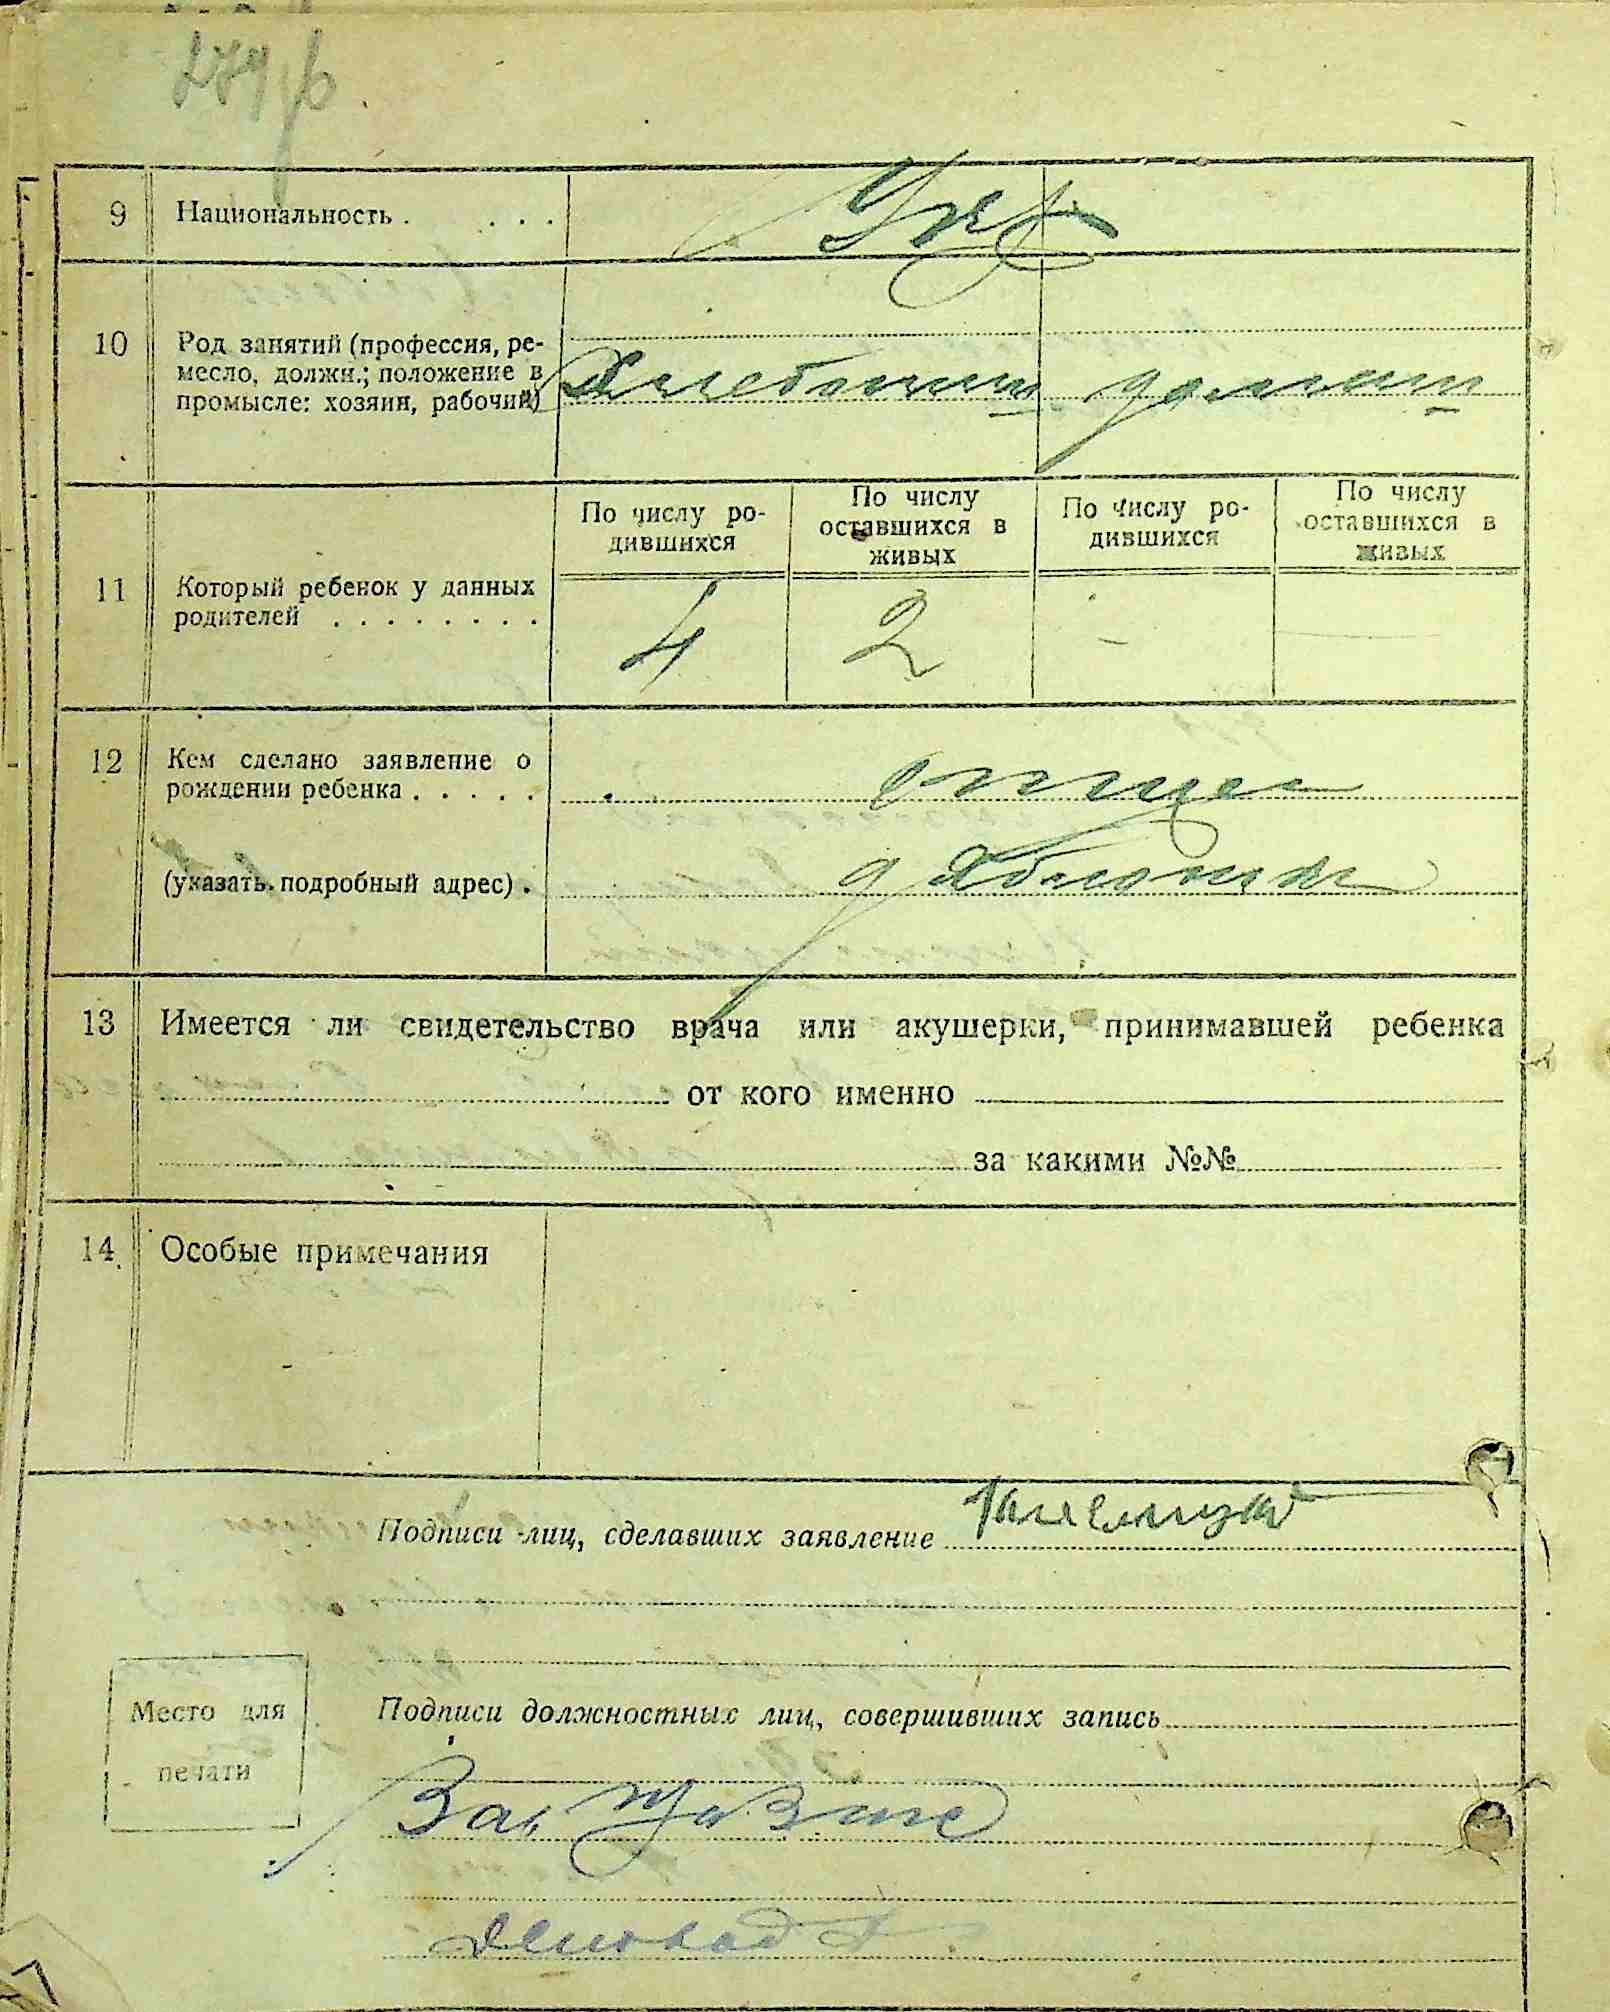 9 Национальность . . . . Укр
10 Род занятий (профессия, ре-
месло, должн.; положение в
промысле: хозяин, рабочий)
По числу ро-
дившихся
По числу
оставшихся в
живых
По числу ро-
дившихся
По числу
оставшихся в
живых
11 Который ребенок у данных
родителей . . . . . . . .
4 2 - -
12 Кем сделано заявление о
рождении ребенка . . . . . отцем
(указать подробный адрес) .
13 Имеется ли свидетельство врача или акушерки, принимавшей ребенка
от кого именно
за какими №№
14 Особые примечания
Подписи лиц, сделавших заявление
Место для
печати
Подписи должностных лиц, совершивших запись
Зав